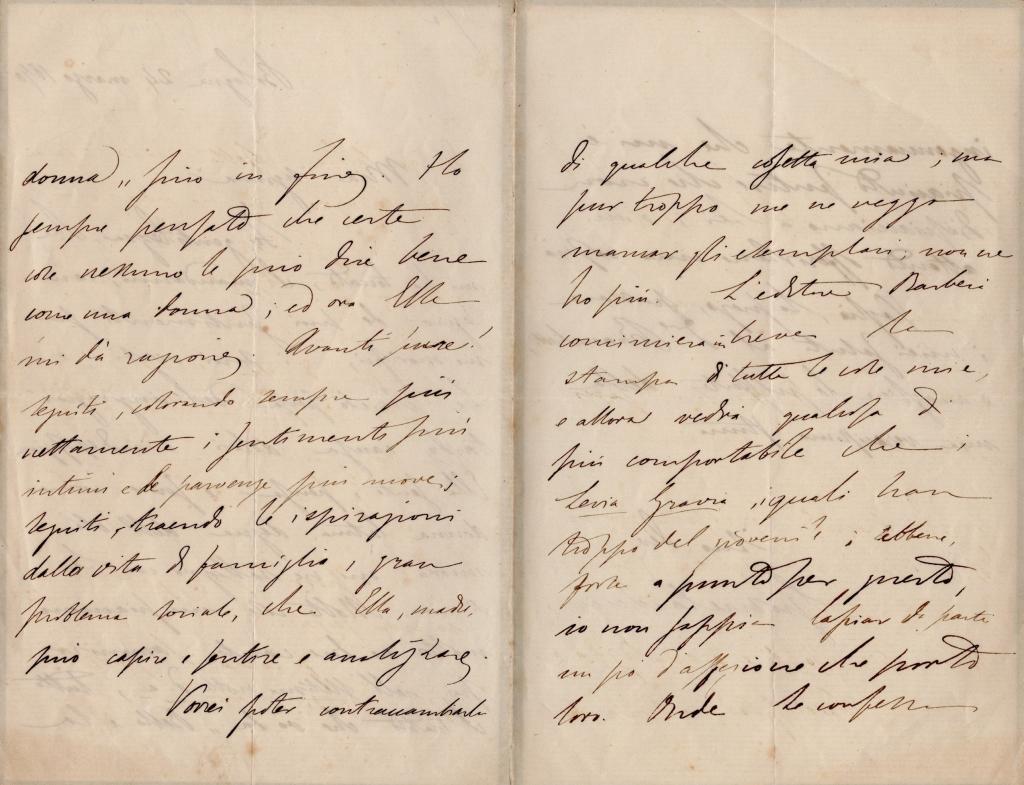 donna „ fino in fine. Ho
sempre pensato che certe
cose nessuno le può dire bene
come una donna; ed ora Ella
mi dà ragione. Avanti pure!
seguiti, colorando sempre più
nettamente i sentimenti più
intimi e le parvenze più nove;
seguiti, traendo le ispirazioni
dalla vita di famiglia, gran
problema sociale, che Ella, madre,
può capire e sentire e analizzare.
Vorrei poter contraccambiarla
di qualche cosetta mia; ma
pur troppo me ne veggo
mancar gli esemplari, non ne
ho più. L'editore Barbèra
comincierà in breve la
stampa di tutte le cose mie,
e allora vedrà qualcosa di
più comportabile che i
Levia Gravia, i quali han
troppo del
forse a punto per questo,
io non saprei lasciar da parte
un po' d'affezione che porto
loro. Onde Le confesso